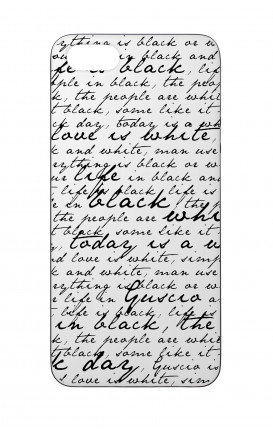 ything is black or w
in black and
fe is black, life
ple in black, the peop
k, the people are whit
t black, some like it
ck day, today is a wh
love is white,
k and white, man use
rything is black or w
ur life in black and
life is black, life is
e in black, the
the people are whi
t black, some like it
, today is a w
d love is white, simp
k and white, man use
rything is black or w
r life in Guscio a
ife is black, life is
in black, the
, the people are white
t black, some like it
c day, Guscio is
s love is white, sim